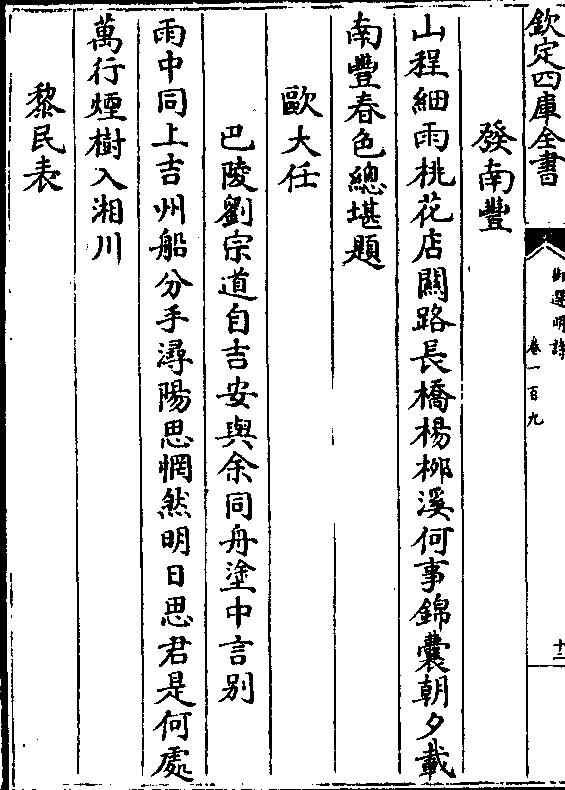 欽定四庫全書
御選明詩
卷一百九
十二
發南豐
山程細雨桃花店闗路長橋楊栁溪何事錦囊朝夕載
南豐春色總堪題
歐大任
巴陵劉宗道自吉安與余同舟塗中言别
雨中同上吉州船分手潯陽思惘然明日思君是何處
萬行煙樹入湘川
黎民表